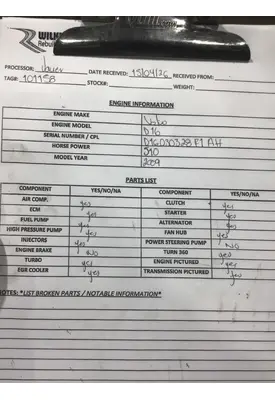 WILK
Rebuil
PROCESSOR: DATE RECEIVED: 15/04/26 RECEIVED FROM:
TAG#: 101758 STOCK#: WEIGHT:
ENGINE INFORMATION
ENGINE MAKE Volvo
ENGINE MODEL D16
SERIAL NUMBER / CPL
HORSE POWER
MODEL YEAR 2009
PARTS LIST
COMPONENT YES/NO/NA COMPONENT YES/NO/NA
AIR COMP. yes CLUTCH yes
ECM yes STARTER yes
FUEL PUMP yes ALTERNATOR yes
HIGH PRESSURE PUMP yes FAN HUB yes
INJECTORS yes POWER STEERING PUMP NO
ENGINE BRAKE NO TURN 360 NO
TURBO yes ENGINE PICTURED yes
EGR COOLER yes TRANSMISSION PICTURED yes
NOTES: *LIST BROKEN PARTS / NOTABLE INFORMATION*